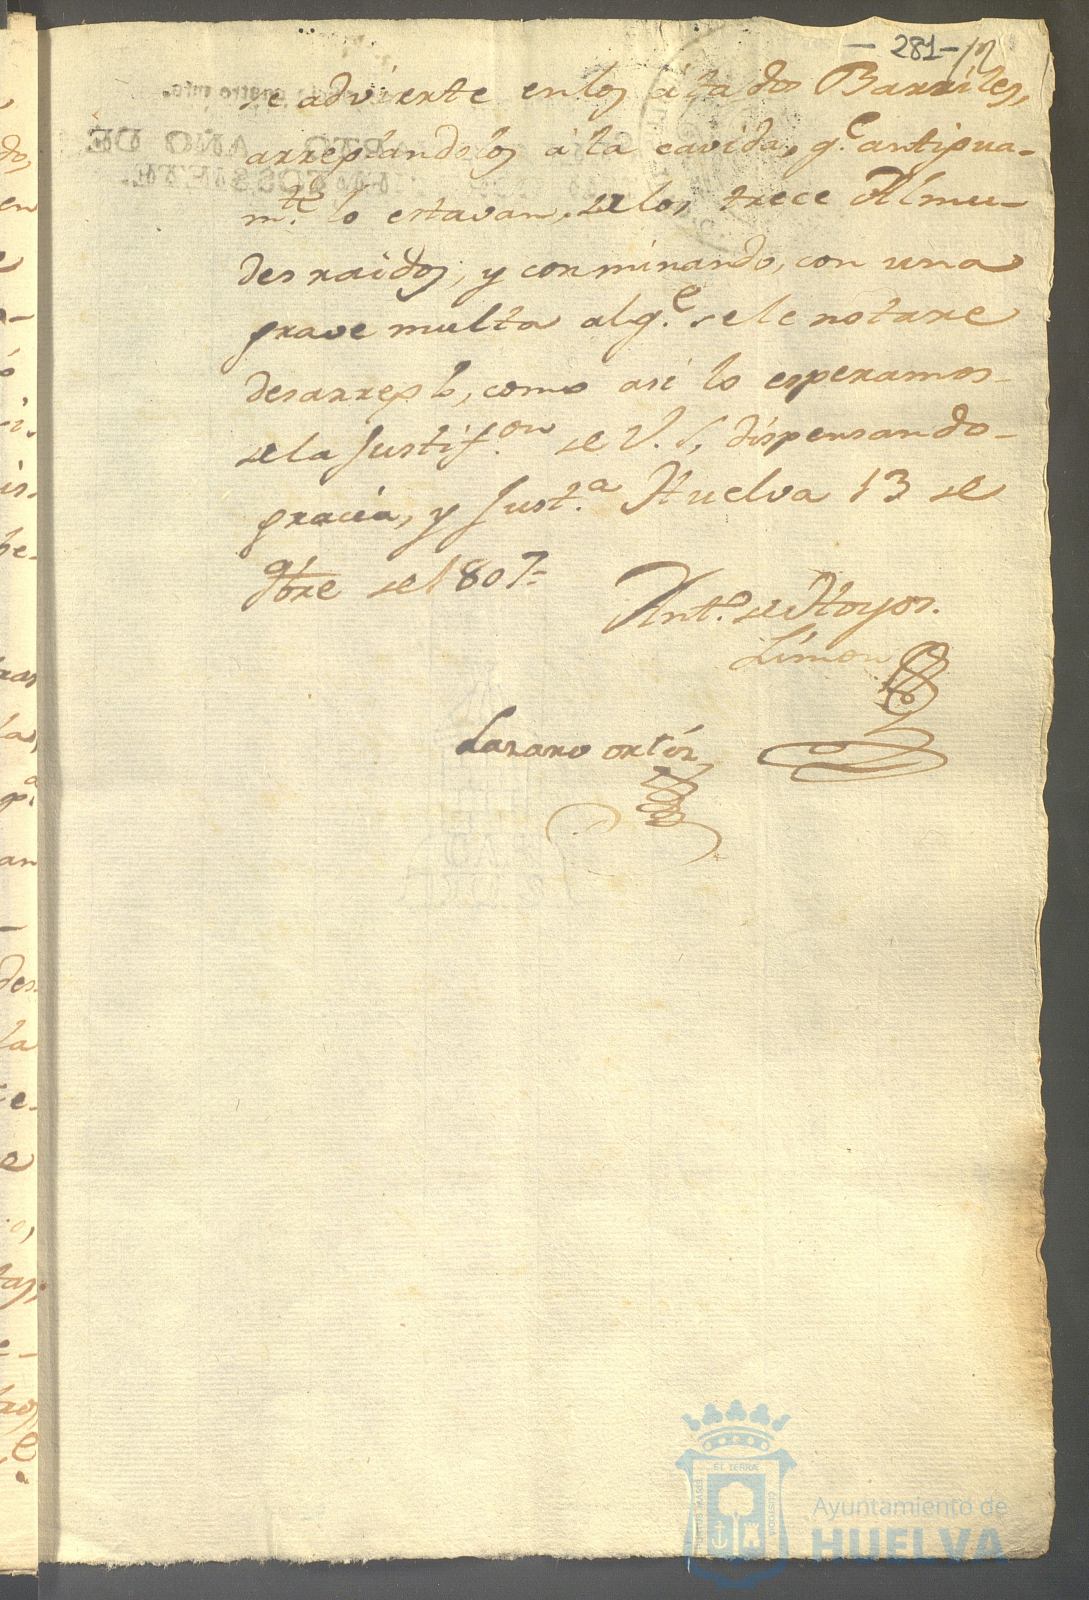 - 281 -
se advierte enlos citados Barriles,
arreglandolos á la cavida, q.e antigua-
m.te lo estavan, de los trece Almu-
des raidos, y conminando, con una
grave multa al q.e se le notare
desarreglo, como asi lo esperamos
de la Justif.on de V. S. dispensando
gracia, y Just.a Huelva 13 de
9bre de 1807=
Ant.o de Hoyos.
Limon
Lazaro ortiz
Ayuntamiento de
HUELVA